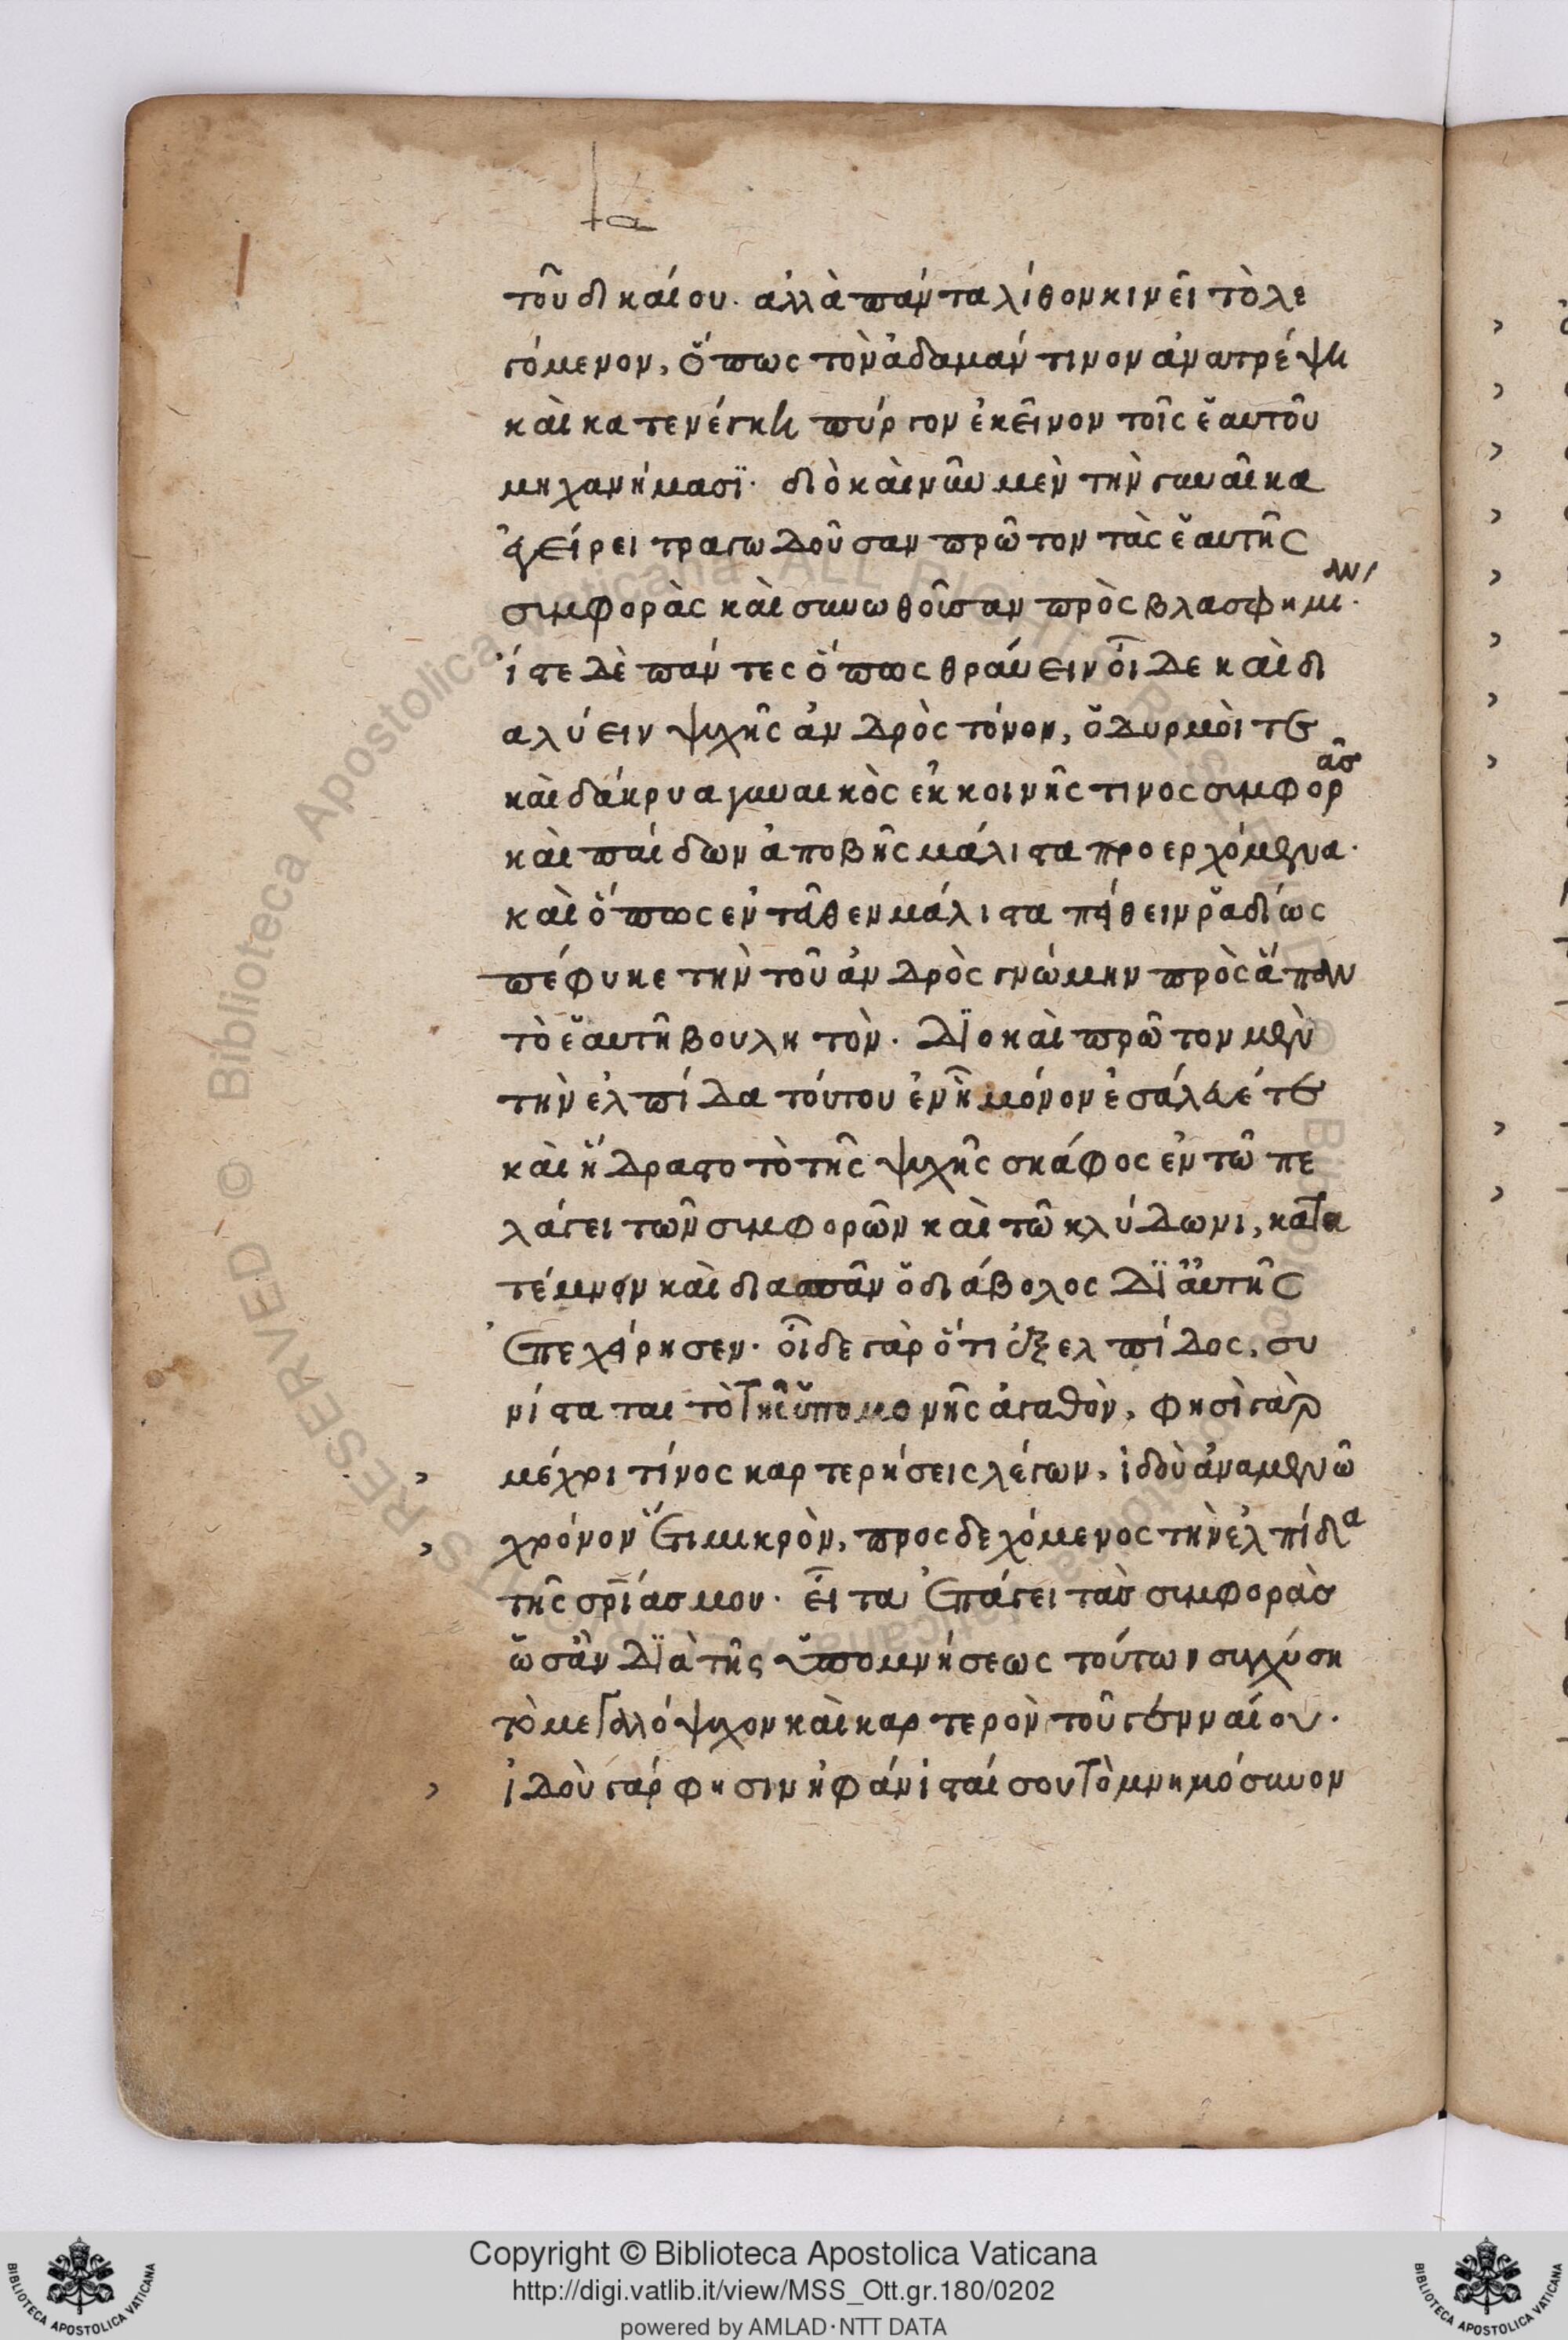 τοῦ δικαίου. ἀλλὰ πάντα λίθον κινεῖ τὸ λε
γόμενον, ὅπως τὸν ἀδαμάντινον ἀνατρέψη
καὶ κατενέγκη πύργον ἐκεῖνον τοῖς ἑαυτοῦ
μηχανήμασϊ. διὸ καὶ νῦν μὲν τὴν γυναῖκα
ἐγείρει τραγωδοῦσαν πρῶτον τὰς ἑαυτῆς
συμφορὰς καὶ συνωθοῦσαν πρὸς βλασφημίαν.
ἴστε δὲ πάντες ὅπως θραύειν οἶδε καὶ δι
αλύειν ψυχῆς ἀνδρὸς τόνον, ὀδυρμοί τε
καὶ δάκρυα γυναικὸς ἐκ κοινῆς τινος συμφορᾶς
καὶ παίδων ἀποβῆς μάλιστα προερχόμενα.
καὶ ὅπως ἐνταῦθεν μάλιστα πείθειν ῥαδίως
πέφυκε τὴν τοῦ ἀνδρὸς γνώμην πρὸς ἅπαν
τὸ ἑαυτῆ βουλητὸν. Δϊο καὶ πρῶτον μὲν
τὴν ἐλπίδα τούτου ἐν ἧ μόνον ἐσάλευέ τε
καὶ ἥδραστο τὸ τῆς ψυχῆς σκάφος ἐν τῶ πε
λάγει τῶν συμφορῶν καὶ τῶ κλύδωνι, κατα
τέμνειν καὶ διασπᾶν ὁ διάβολος Δϊ αὐτῆς
ἐπεχείρησεν. οἶδε γὰρ ὅτι ἐξ ἐλπίδος, συ
νίσταται τὸ τῆς ὑπομονῆς ἀγαθὸν, φησὶ γὰρ
› μέχρι τίνος καρτερήσεις λέγων, ἰδοὺ ἀναμενῶ
› χρόνον ἔτι μικρὸν, προσδεχόμενος τὴν ἐλπίδα
τῆς σρΐας μου. εἶτα ἐπάγει τὰς συμφορὰς
ὡσὰν Δϊὰ τῆς ὑπομνήσεως τούτων συγχύση
τὸ μεγαλόψυχον καὶ καρτερὸν τοῦ γενναίου.
› ἰδοὺ γάρ φησιν ἠφάνισταί σου τὸ μνημόσυνον
Copyright © Biblioteca Apostolica Vaticana
http://digi.vatlib.it/view/MSS_Ott.gr.180/0202
powered by AMLAD·NTT DATA